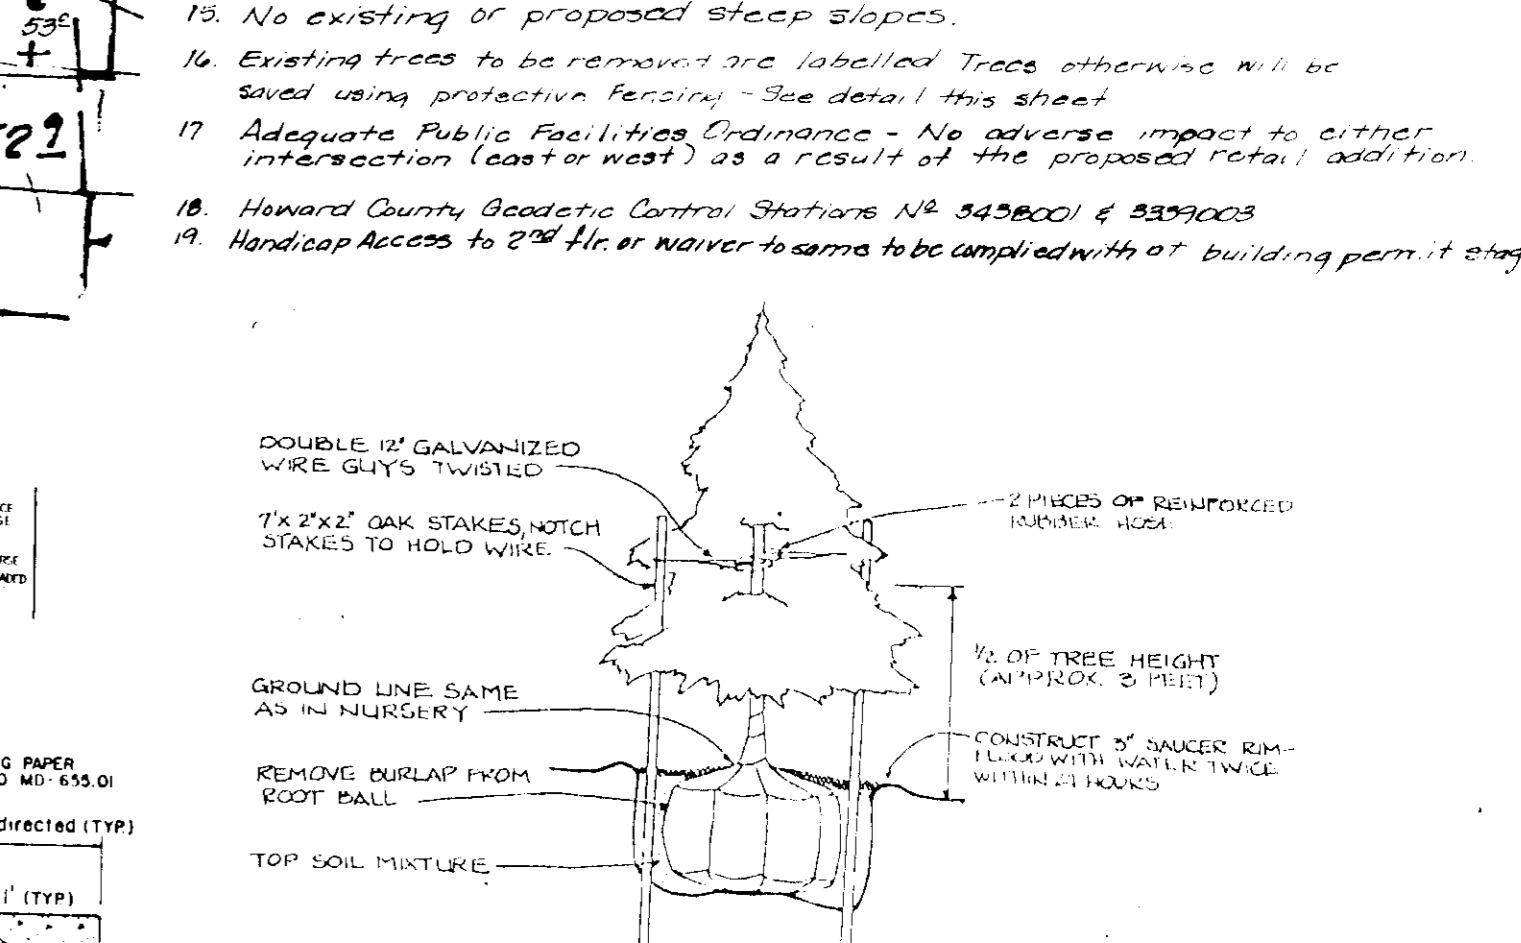 53⁰
15. No existing or proposed steep slopes.
16. Existing trees to be removed are labelled Trees otherwise will be
saved using protective Fencing - See detail this sheet
17 Adequate Public Facilities Ordinance - No adverse impact to either
intersection (east or west) as a result of the proposed retail addition.
18. Howard County Geodetic Control Stations Nº 3438001 & 3339003
19. Handicap Access to 2nd flr. or waiver to same to be complied with at building permit stag
DOUBLE 12' GALVANIZED
WIRE GUYS TWISTED
7'x 2"x2" OAK STAKES, NOTCH
STAKES TO HOLD WIRE
2 PIECES OF REINFORCED
RUBBER HOSE
1/2 OF TREE HEIGHT
(APPROX. 3 FEET)
GROUND LINE SAME
AS IN NURSERY
CONSTRUCT 3" SAUCER RIM-
FLOOD WITH WATER TWICE
WITHIN 24 HOURS
REMOVE BURLAP FROM
ROOT BALL
TOP SOIL MIXTURE
G PAPER
MD-655.01
directed (TYP.)
1' (TYP.)